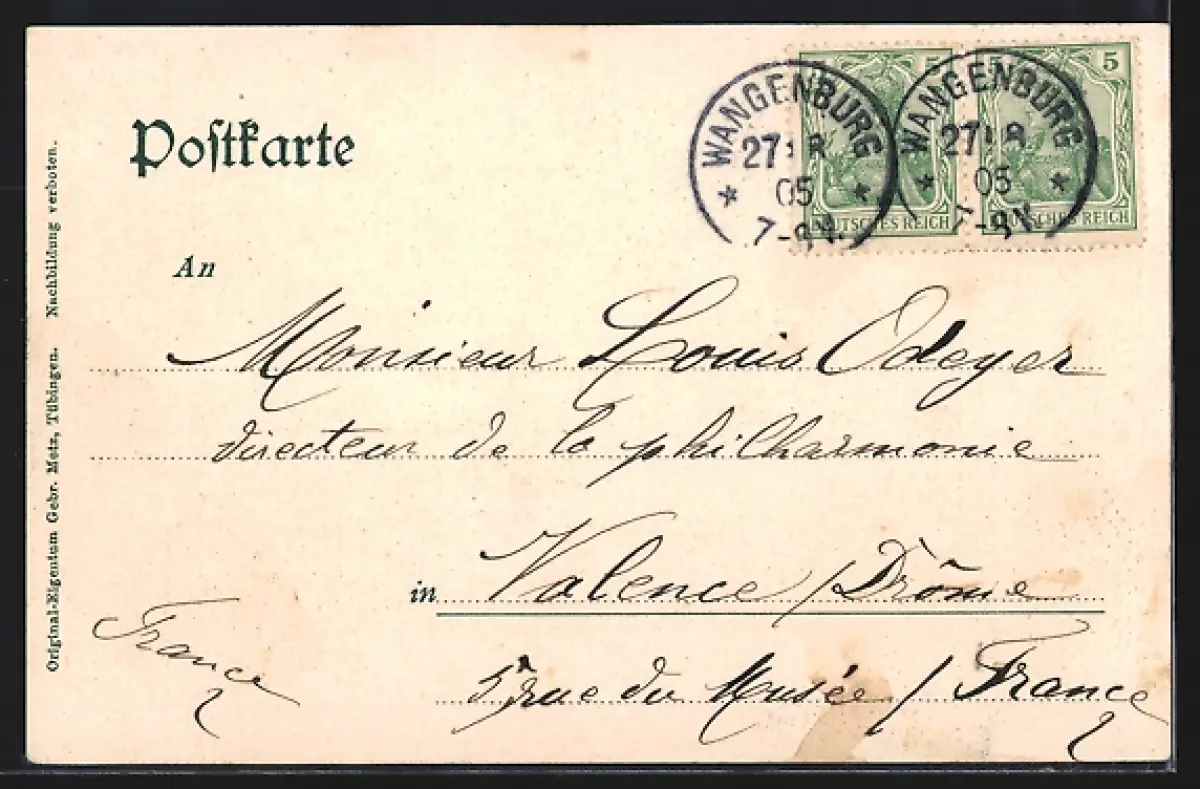 Postkarte
WANGENBURG
27 8
05
7-8 N.
WANGENBURG
27 8
05
7-8 N.
5
DEUTSCHES REICH
5
DEUTSCHES REICH
An
Monsieur Louis Odeyer
directeur de la philharmonie
in Valence / Drôme
5 rue du Musée / France
France
Original-Eigentum Gebr. Metz, Tübingen. Nachbildung verboten.